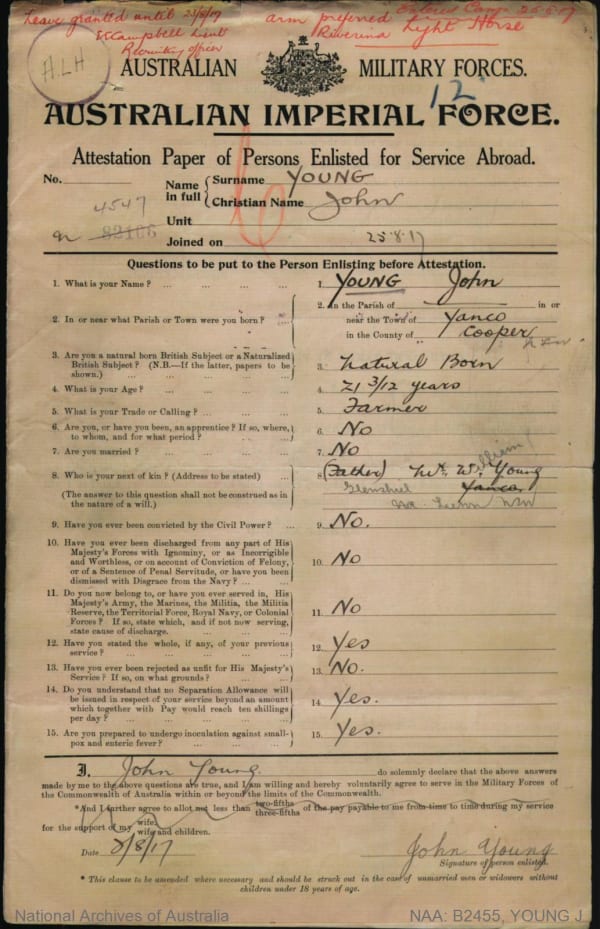 Leave granted until 25/8/17 arm preferred Entered Camp 25-8-17
E Campbell Lieut Riverina Light Horse
Recruiting officer
A.L.H
AUSTRALIAN MILITARY FORCES.
12
AUSTRALIAN IMPERIAL FORCE.
Attestation Paper of Persons Enlisted for Service Abroad.
No. Name in full { Surname YOUNG
4547 Christian Name John
N 82106 Unit
Joined on 25.8.17
Questions to be put to the Person Enlisting before Attestation.
1. What is your Name? ... ... ... ... 1. YOUNG John
2. In or near what Parish or Town were you born? ... 2. In the Parish of ——— in or
near the Town of Yanco
in the County of Cooper
N.S.W.
3. Are you a natural born British Subject or a Naturalized
British Subject? (N.B.—If the latter, papers to be
shown.) ... ... ... ... 3. Natural Born
4. What is your Age? ... ... ... ... 4. 21 3/12 years
5. What is your Trade or Calling? ... ... ... 5. Farmer
6. Are you, or have you been, an apprentice? If so, where,
to whom, and for what period? ... ... ... 6. No
7. Are you married? ... ... ... ... 7. No
8. Who is your next of kin? (Address to be stated) 8. (Father) Mr. William Young
(The answer to this question shall not be construed as in
the nature of a will.) Glenshiel Yanco
NSW
9. Have you ever been convicted by the Civil Power? ... 9. No.
10. Have you ever been discharged from any part of His
Majesty's Forces with Ignominy, or as Incorrigible
and Worthless, or on account of Conviction of Felony,
or of a Sentence of Penal Servitude, or have you been
dismissed with Disgrace from the Navy? ... ... 10. No
11. Do you now belong to, or have you ever served in, His
Majesty's Army, the Marines, the Militia, the Militia
Reserve, the Territorial Force, Royal Navy, or Colonial
Forces? If so, state which, and if not now serving,
state cause of discharge. ... ... ... 11. No
12. Have you stated the whole, if any, of your previous
service? ... ... ... ... 12. Yes
13. Have you ever been rejected as unfit for His Majesty's
Service? If so, on what grounds? ... ... 13. No.
14. Do you understand that no Separation Allowance will
be issued in respect of your service beyond an amount
which together with Pay would reach ten shillings
per day? ... ... ... ... 14. Yes.
15. Are you prepared to undergo inoculation against small-
pox and enteric fever? ... ... ... 15. Yes.
I, John Young do solemnly declare that the above answers
made by me to the above questions are true, and I am willing and hereby voluntarily agree to serve in the Military Forces of
the Commonwealth of Australia within or beyond the limits of the Commonwealth.
*And I further agree to allot not less than two-fifths three-fifths of the pay payable to me from time to time during my service
for the support of my wife. wife and children.
Date 8/8/17 John Young
Signature of person enlisted.
* This clause to be amended where necessary and should be struck out in the case of unmarried men or widowers without
children under 18 years of age.
National Archives of Australia NAA: B2455, YOUNG J